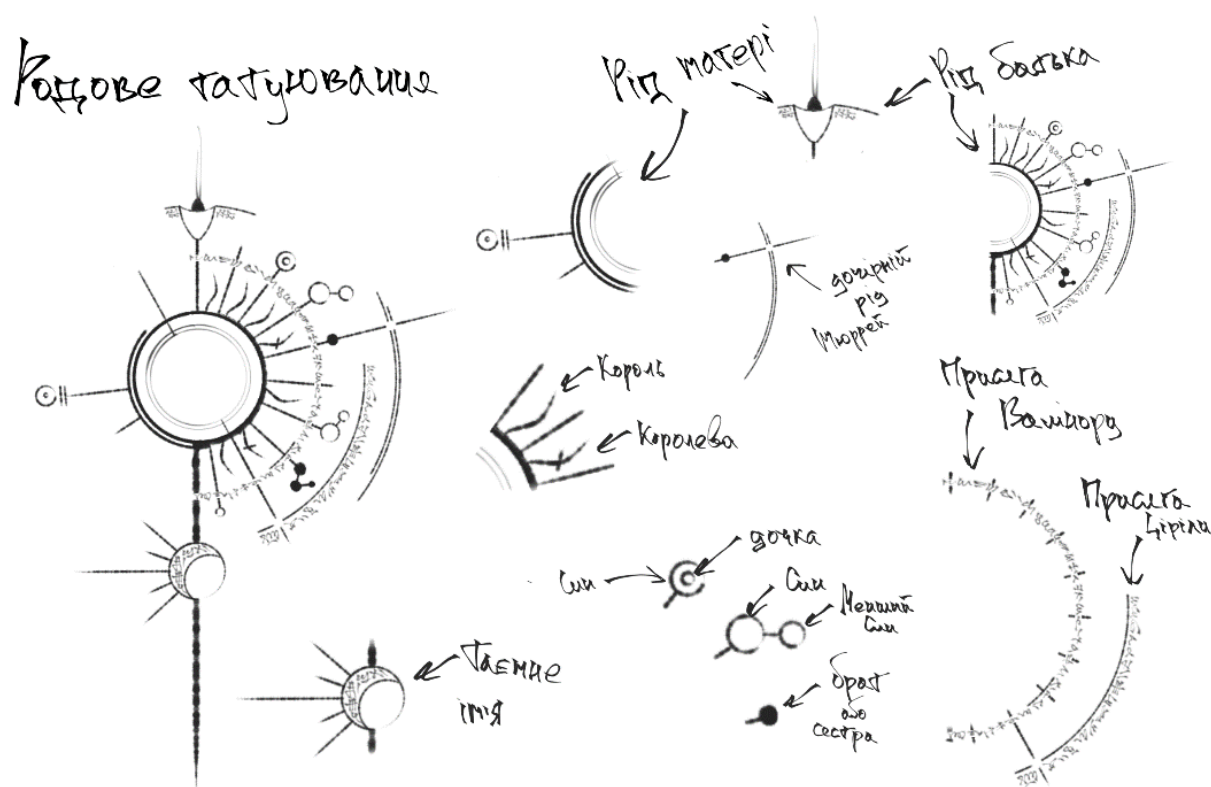 Родове татуювання
Рід матері
Рід батька
дочірній
рід
Мюррей
Король
Королева
Присяга
Вампору
Присяга
Ціріли
дочка
Син
Син
Менший
син
брат
або
сестра
Таємне
ім'я